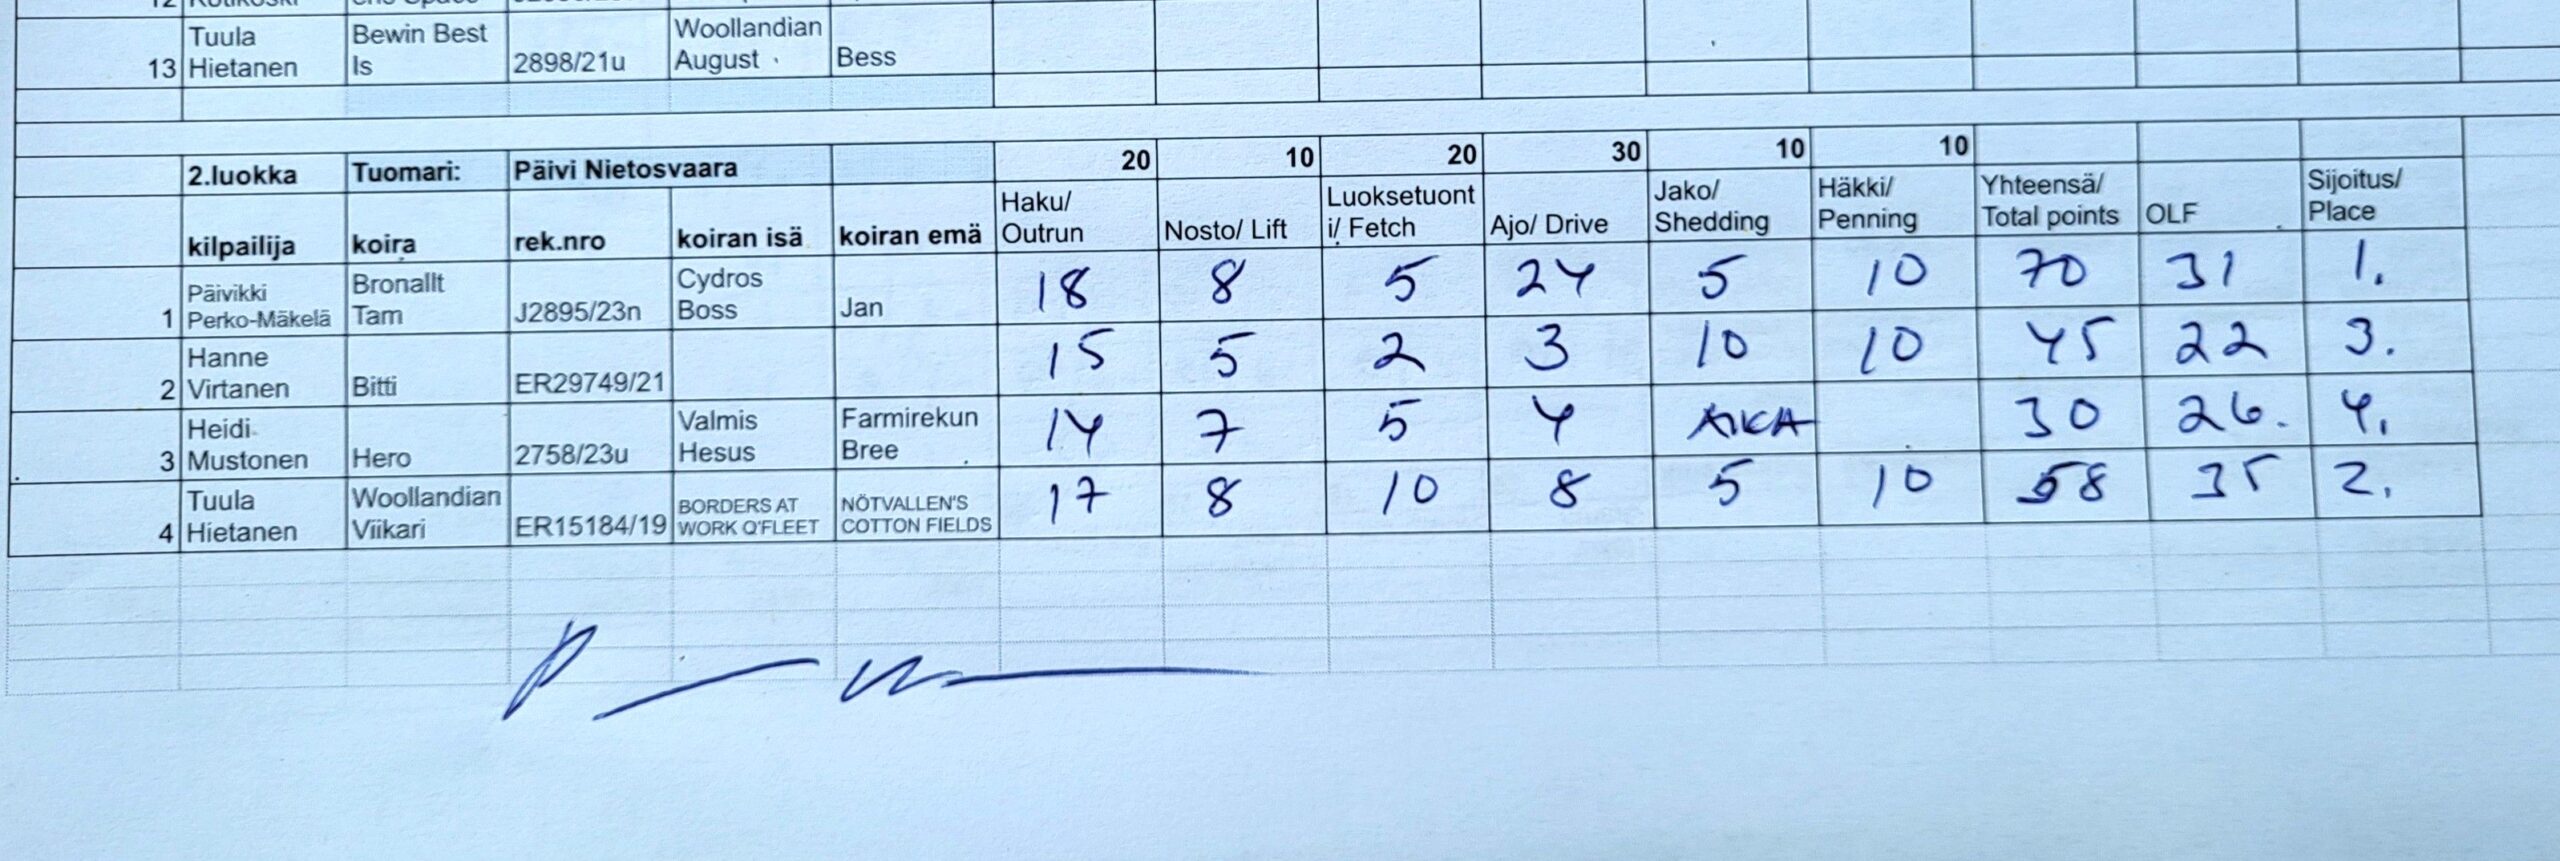 Tuula Hietanen Bewin Best Is 2898/21u Woollandian August Bess
13
20 10 20 30 10 10
2.luokka Tuomari: Päivi Nietosvaara
kilpailija koira rek.nro koiran isä koiran emä Haku/ Outrun Nosto/ Lift Luoksetuonti/ Fetch Ajo/ Drive Jako/ Shedding Häkki/ Penning Yhteensä/ Total points OLF Sijoitus/ Place
1 Päivikki Perko-Mäkelä Bronallt Tam J2895/23n Cydros Boss Jan 18 8 5 24 5 10 70 31 1.
2 Hanne Virtanen Bitti ER29749/21 15 5 2 3 10 10 45 22 3.
3 Heidi Mustonen Hero 2758/23u Valmis Hesus Farmirekun Bree 14 7 5 4 AIKA 30 26. 4.
4 Tuula Hietanen Woollandian Viikari ER15184/19 BORDERS AT WORK Q'FLEET NÖTVALLEN'S COTTON FIELDS 17 8 10 8 5 10 58 35 2.